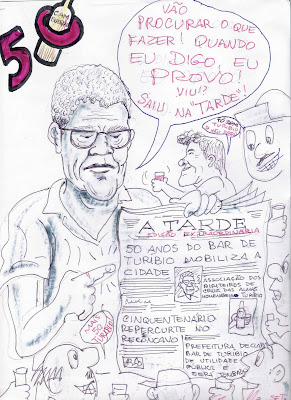 50
VÃO
PROCURAR O QUE
FAZER! QUANDO
EU DIGO, EU
PROVO!
VIU!?
SAIU NA "TARDE"!
A TARDE
EDIÇÃO EXTRAORDINÁRIA
50 ANOS DO BAR DE
TURIBIO MOBILIZA A
CIDADE
ASSOCIAÇÃO DOS
DE CRUZ DAS ALMAS
TURIBIO
CINQUENTENÁRIO
REPERCURTE NO
RECONCAVO
PREFEITURA DECLARA
BAR DE TURIBIO
DE UTILIDADE
PÚBLICA E